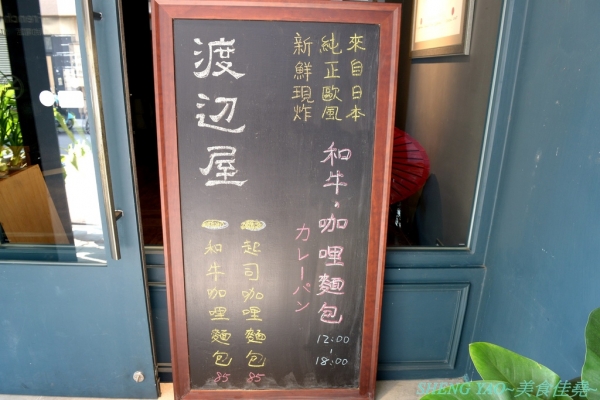 來自日本
純正歐風
新鮮現炸
和牛,咖哩麵包
カレーパン
12:00
-
18:00
渡辺屋
起司咖哩麵包 85
和牛咖哩麵包 85
SHENG YAO~美食佳堯~